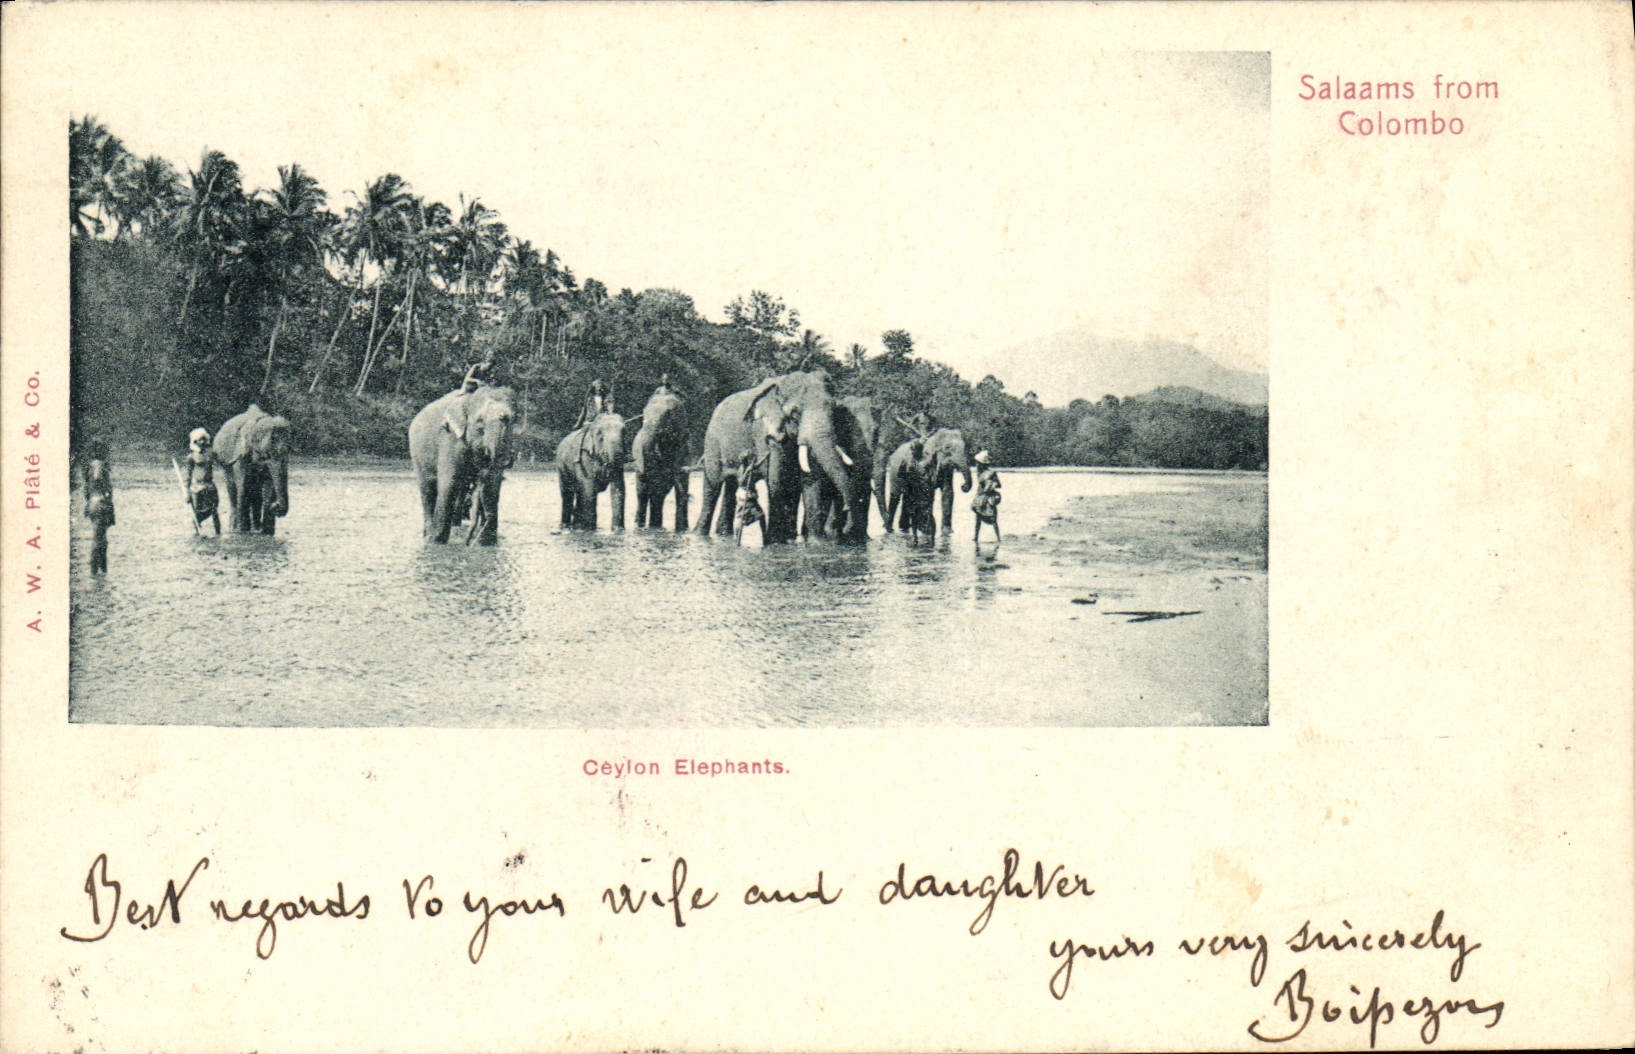 Salaams from
Colombo
A. W. A. Plâté & Co.
Ceylon Elephants.
Best regards to your wife and daughter
yours very sincerely